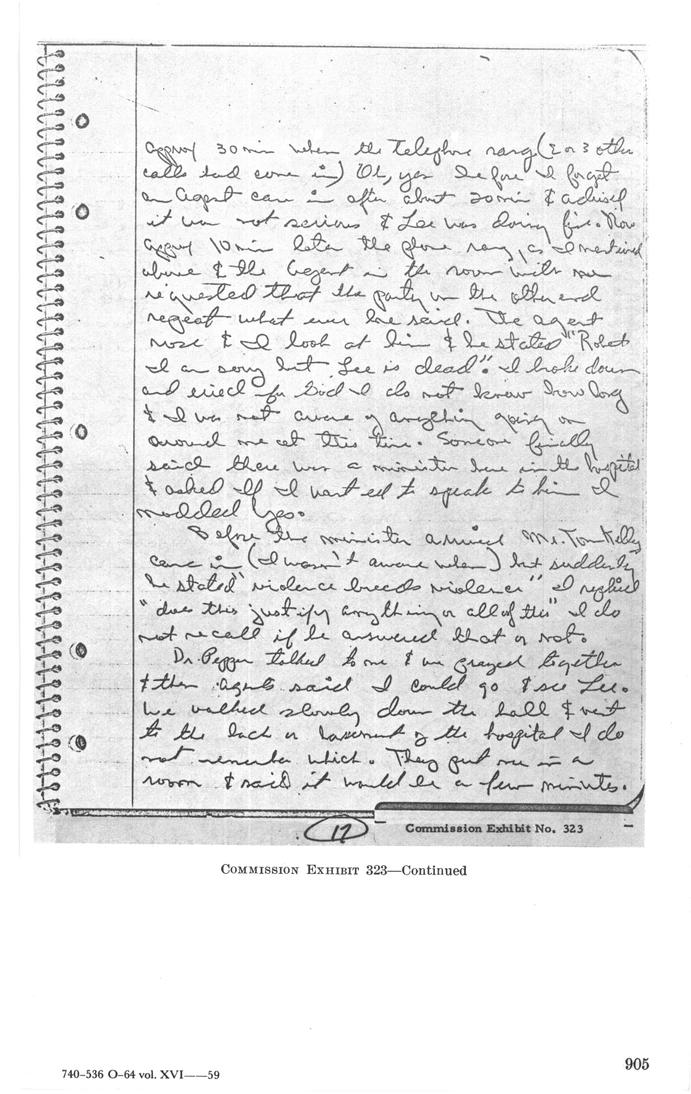 approx 30 min when the telephone rang (2 or 3 other
calls had come in) Oh, yes before I forget
an Agent came in after about 20 min & advised
it was not serious & Lee was doing fine. Now
approx 10 min later the phone rang, as I mentioned
above & the Agent in the room with me
requested that the party on the other end
repeat what ever he said. The agent
rose & I look at him & he stated "Robert
I am sorry but Lee is dead". I broke down
and cried for God I do not know how long
& I was not aware of anything going on
around me at this time. Someone finally
said there was a minister here in the hospital
& asked if I wanted to speak to him I
nodded yes.
Before the minister arrived Mr. Tom Kelly
came in (I wasn't aware when) but suddenly
he stated "violence breeds violence" I replied
"does this justify anything or all of this" I do
not recall if he answered that or not.
Dr. Pepper talked to me & we prayed together
& then agents said I could go & see Lee.
We walked slowly down the hall & went
to the back or basement of the hospital I do
not remember which. They put me in a
room & said it would be a few minutes.
17
Commission Exhibit No. 323
COMMISSION EXHIBIT 323—Continued
905
740-536 O-64 vol. XVI——59